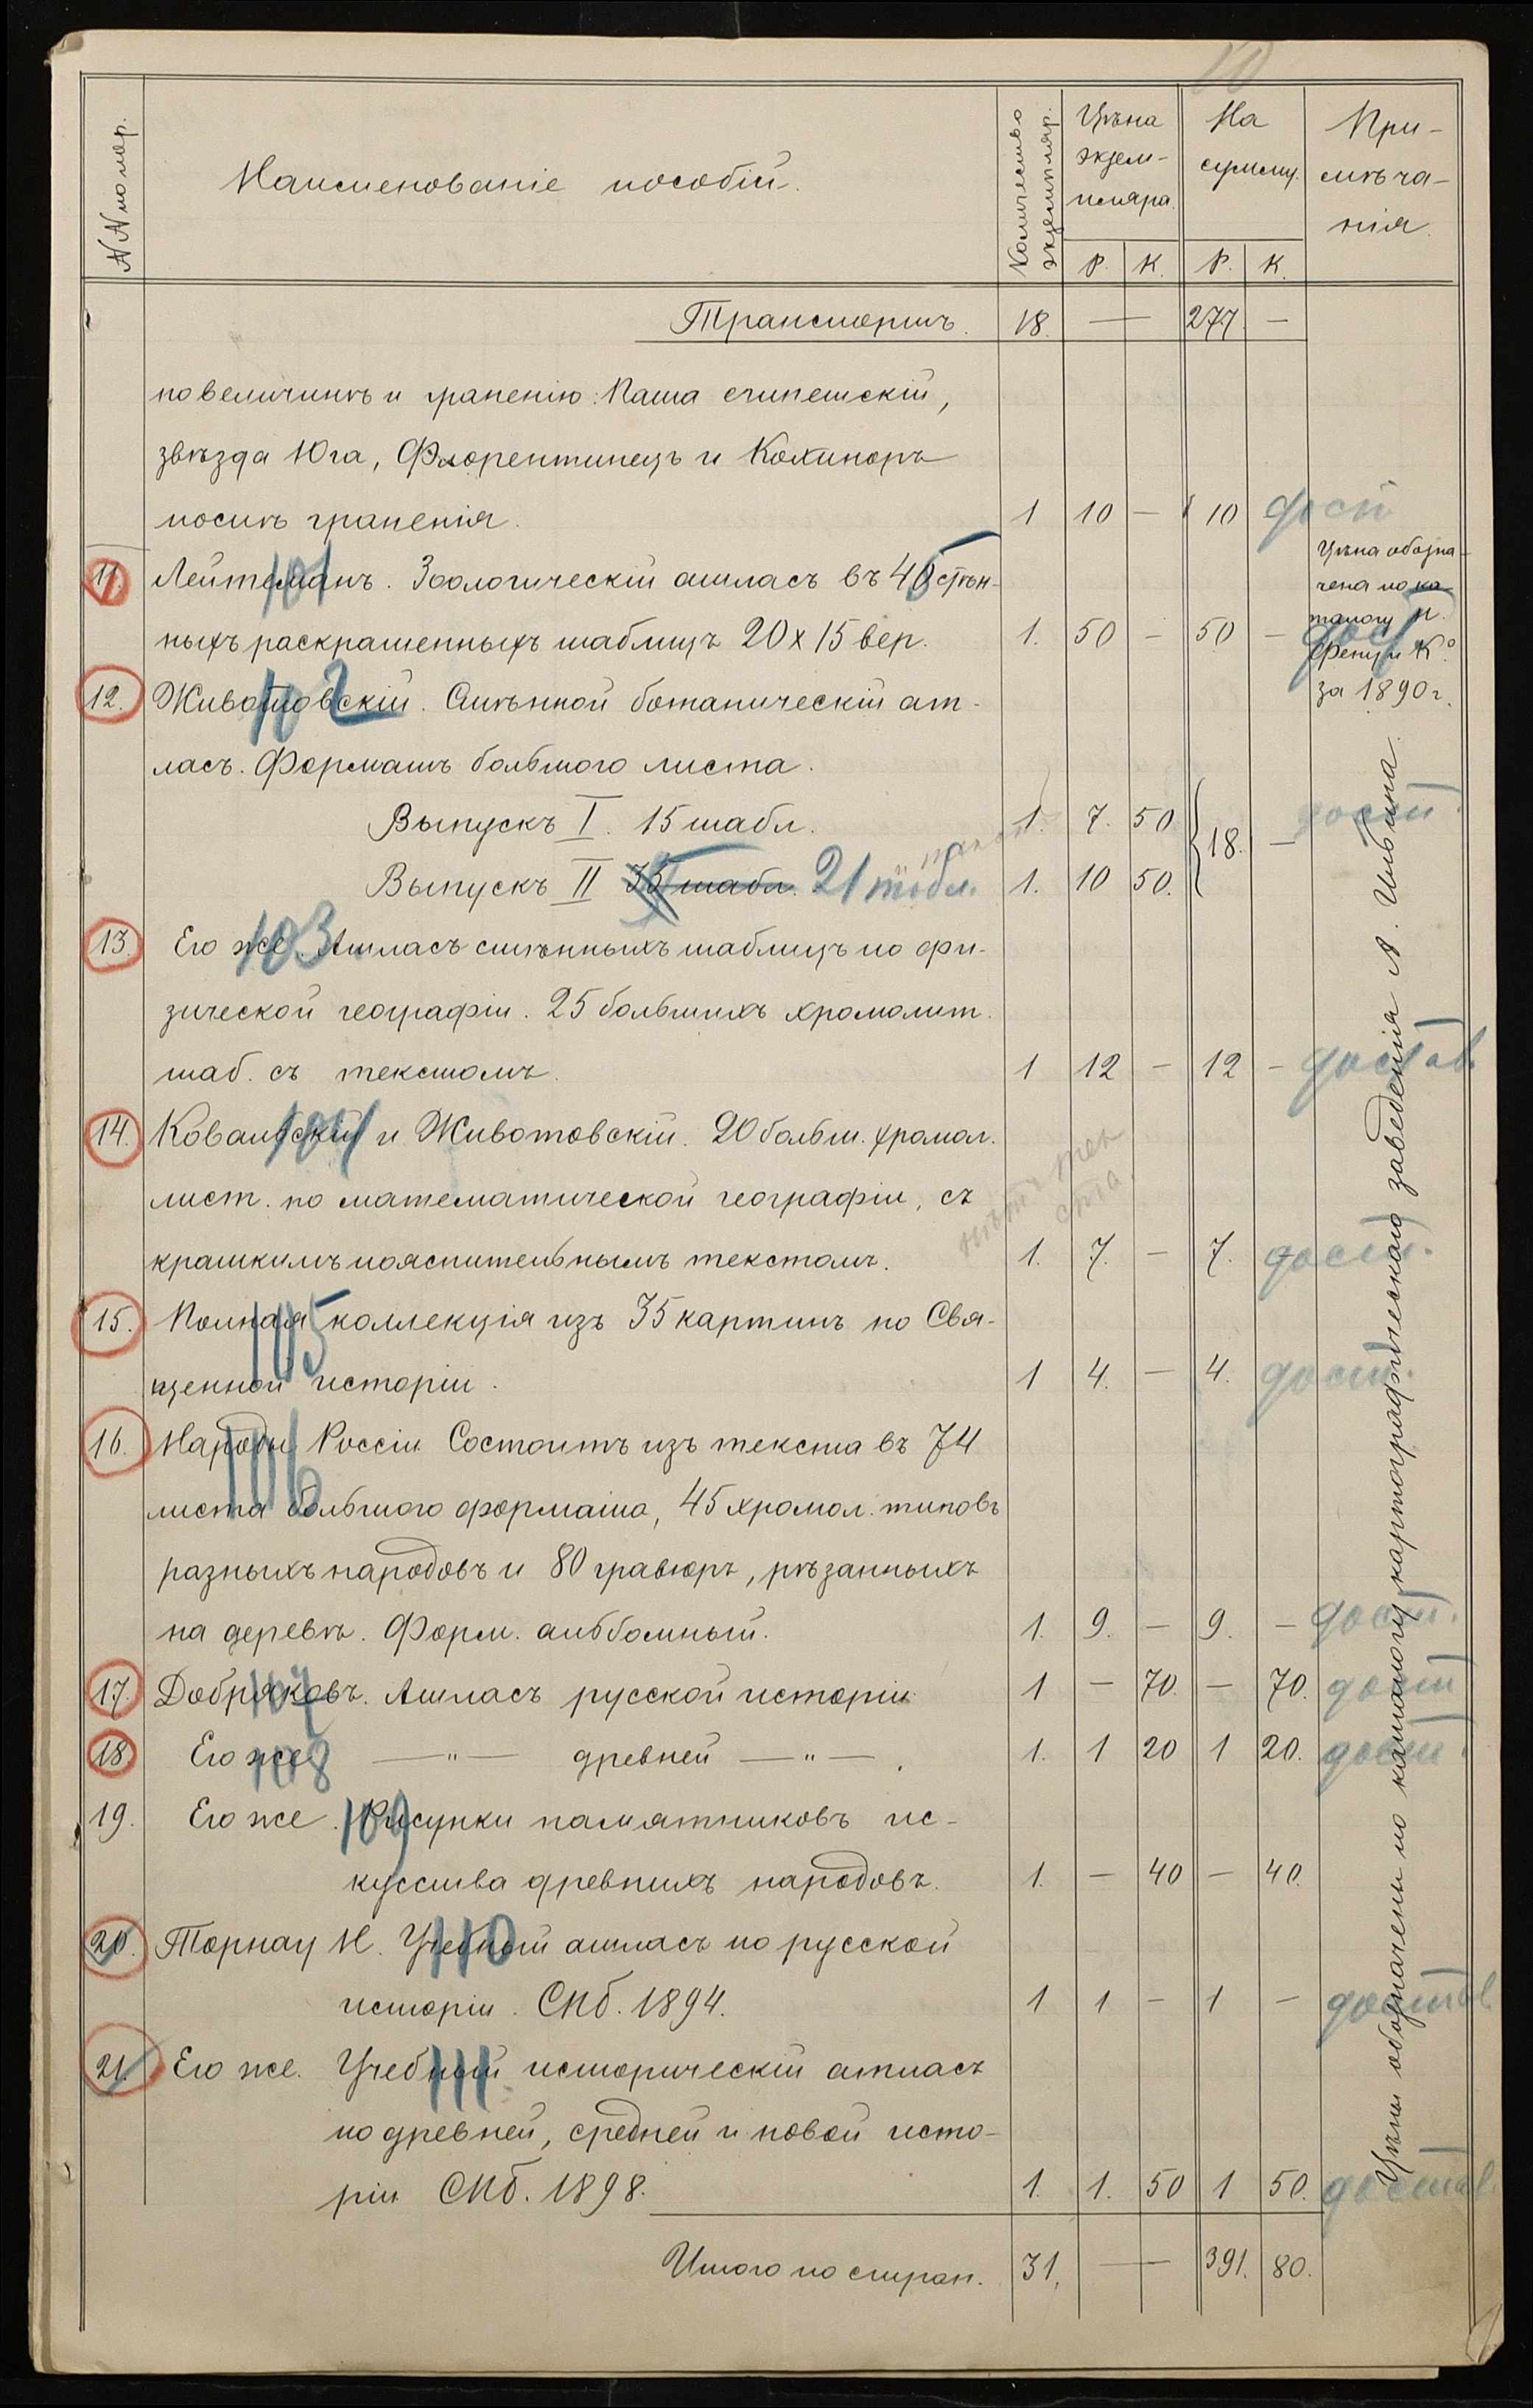 10
№№ номер.
Наименованіе пособій.
Количество экземпляр.
Цѣна экзем-пляра.
На сумму.
При-мѣча-нія.
Р. К. Р. К.
Транспортъ. 18. — 277 —
по величинѣ и граненію: Паша египетскій,
звѣзда Юга, Флорентинецъ и Кохиноръ
послѣ граненія. 1 10 — 10 дост
11. 101 Лейтеманъ. Зоологическій атласъ въ 45 стѣн-
ныхъ раскрашенныхъ таблицъ 20 х 15 вер. 1. 50 — 50 — дост
Цѣна обозна-
чена по ка-
талогу
Фену и К°
за 1890 г.
12. 102 Животовскій. Стѣнной ботаническій ат-
ласъ. Форматъ большого листа.
Выпускъ I. 15 табл. 1. 7. 50 18. — дост.
Выпускъ II 35 табл. 21 табл. 1. 10 50.
13. 103 Его же. Атласъ стѣнныхъ таблицъ по фи-
зической географіи. 25 большихъ хромолит.
таб. съ текстомъ. 1 12 — 12 — достав
14. 104 Ковальскій и Животовскій. 20 больш. хромол.
лист. по математической географіи, съ
краткимъ пояснительнымъ текстомъ. 1. 7. — 7. дост.
нѣтъ тек
ста.
15. 105 Полная коллекція изъ 35 картинъ по Свя-
щенной исторіи. 1 4. — 4. дост.
16. 106 Народы Россіи Состоитъ изъ текста въ 74
листа большого формата, 45 хромол. типовъ
разныхъ народовъ и 80 гравюръ, рѣзанныхъ
на деревѣ. Форм. альбомный. 1. 9. — 9. — дост.
17. 107 Добряковъ. Атласъ русской исторіи 1 — 70. — 70. дост
18. 108 Его же — " — древней — " — . 1. 1 20 1 20. дост.
19. 109 Его же. Рисунки памятниковъ ис-
кусства древнихъ народовъ. 1. — 40 — 40.
20. 110 Торнау Н. Учебный атласъ по русской
исторіи. СПб. 1894. 1 1 — 1 — достав
21. 111 Его же. Учебный историческій атласъ
по древней, средней и новой исто-
ріи СПб. 1898. 1. 1. 50 1 50. достав.
Итого по стран. 31. — 391. 80.
Цѣны обозначены по каталогу картографическаго заведенія А. Ильина.